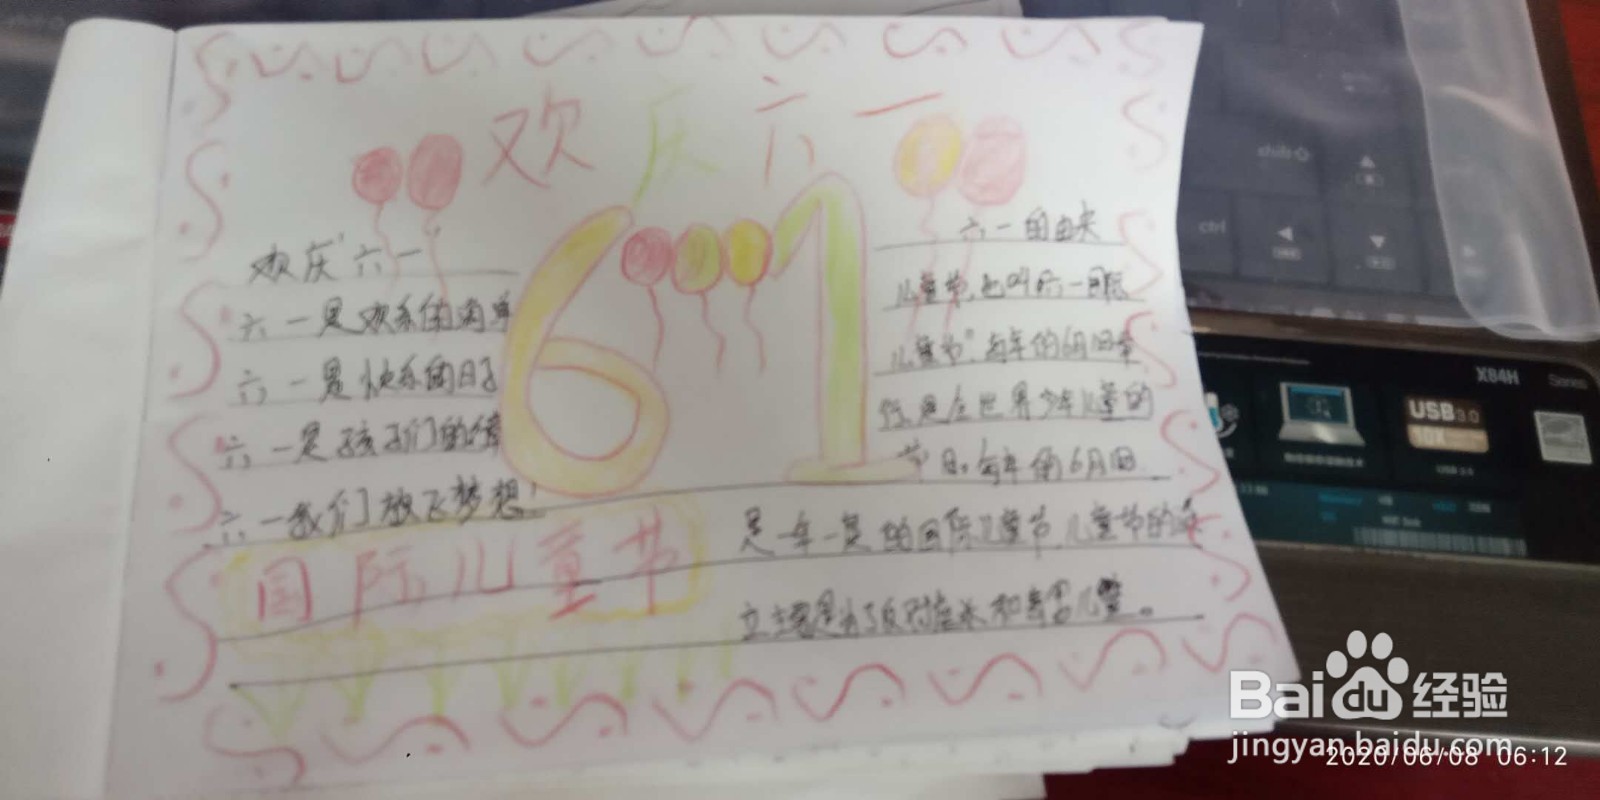 欢庆六一
61
欢庆"六一"
六一是欢乐的海
六一是快乐的日子
六一是孩子们的
六一我们放飞梦想！
国际儿童节
六一的由来
儿童节，也叫"六一国际
儿童节"，每年的6月1日举
行，是全世界少年儿童的
节日。每年的6月1日
是一年一度的国际儿童节，儿童节的
立主要是为了反对虐杀和毒害儿童。
shift
ctrl
X84H Series
USB 3.0
USB 3.0
Bai du 经验
jingyan.baidu.com
2020/06/08 06:12